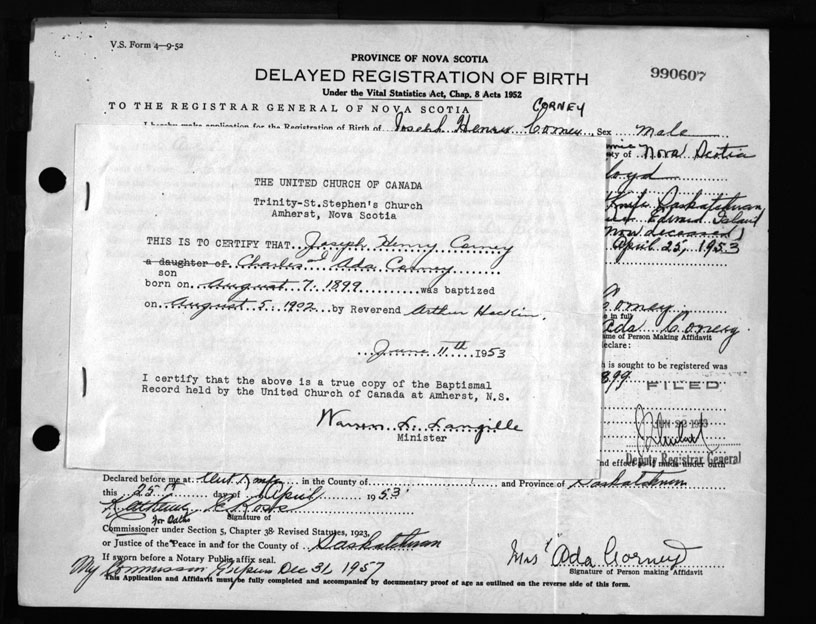 V.S. Form 4—9-52
PROVINCE OF NOVA SCOTIA
DELAYED REGISTRATION OF BIRTH
990607
Under the Vital Statistics Act, Chap. 8 Acts 1952
TO THE REGISTRAR GENERAL OF NOVA SCOTIA
CORNEY
I hereby make application for the Registration of Birth of Joseph Henry Corney, Sex Male
ty of Nova Scotia
loyd
Knife Saskatchewan
Edward Island
now deceased)
April 25, 1953
THE UNITED CHURCH OF CANADA
Trinity-St.Stephen's Church
Amherst, Nova Scotia
THIS IS TO CERTIFY THAT Joseph Henry Corney
a daughter of Charles and Ada Corney
son
born on August 7. 1899 was baptized
on August 5. 1902 by Reverend Arthur
June 11th 1953
I certify that the above is a true copy of the Baptismal
Record held by the United Church of Canada at Amherst, N.S.
Warren Langille
Minister
Corney
e in full
Ada Corney
me of Person Making Affidavit
eclare:
h is sought to be registered was
899
FILED
JUN 1953
Deputy Registrar General
nd effect as if made under oath
Declared before me at Cut Knife in the County of and Province of Saskatchewan
this 25th day of April 1953
Signature of
for Oaths
Commissioner under Section 5, Chapter 38 Revised Statutes, 1923,
or Justice of the Peace in and for the County of Saskatchewan
If sworn before a Notary Public affix seal.
Mrs Ada Corney
Signature of Person making Affidavit
My Commission Expires Dec 31, 1957
This Application and Affidavit must be fully completed and accompanied by documentary proof of age as outlined on the reverse side of this form.